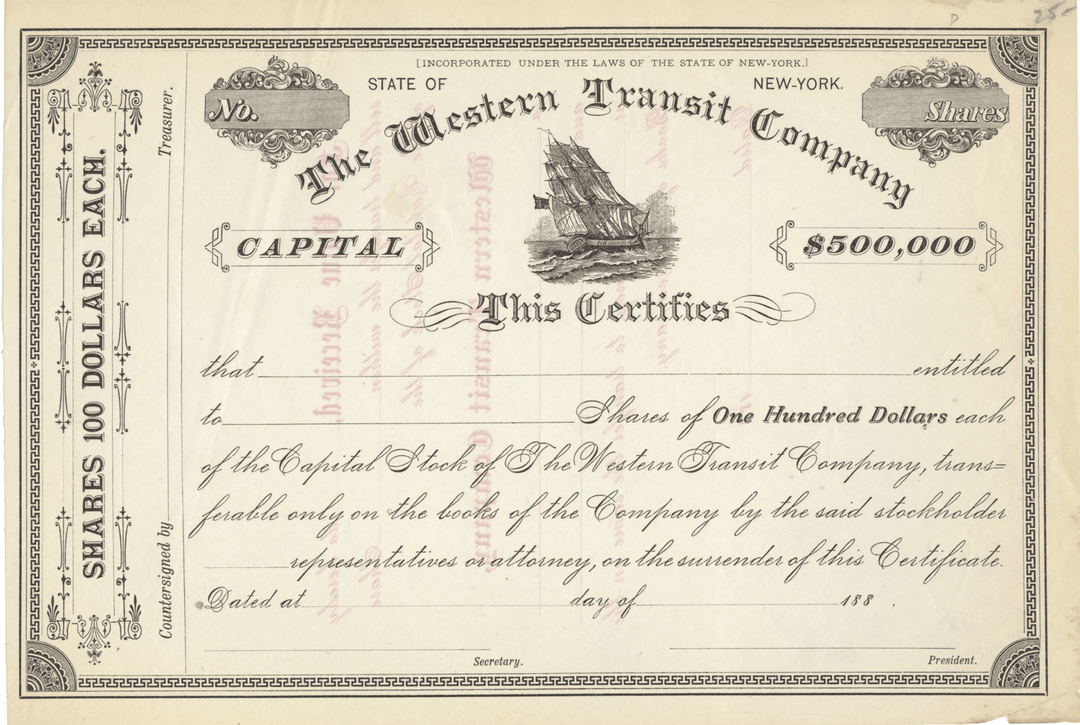 25-
[INCORPORATED UNDER THE LAWS OF THE STATE OF NEW-YORK.]
STATE OF NEW-YORK.
No.
Shares
The Western Transit Company
CAPITAL
$500,000
This Certifies
that entitled
to Shares of One Hundred Dollars each
of the Capital Stock of The Western Transit Company, trans=
ferable only on the books of the Company by the said stockholder
representatives or attorney, on the surrender of this Certificate.
Dated at day of 188 .
Secretary.
President.
SHARES 100 DOLLARS EACH.
Countersigned by Treasurer.
Value Received
Western Transit Company